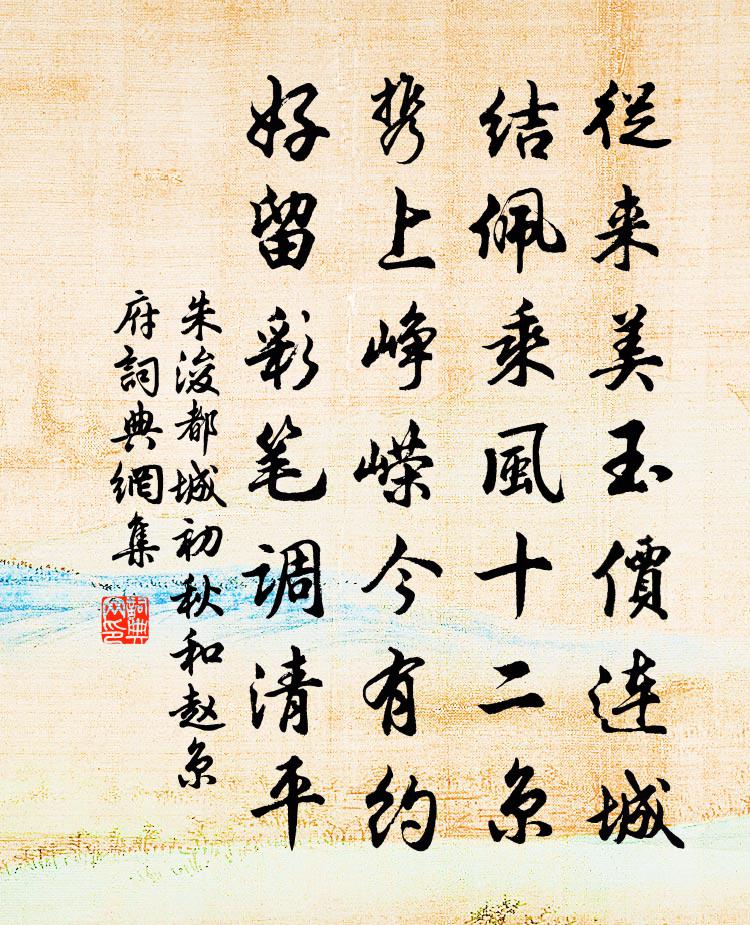 從来美玉價連城
結佩乘風十二京
携上峥嵘今有约
好留彩笔调清平
朱浚都城初秋和赵京
府詞典網集
詞典